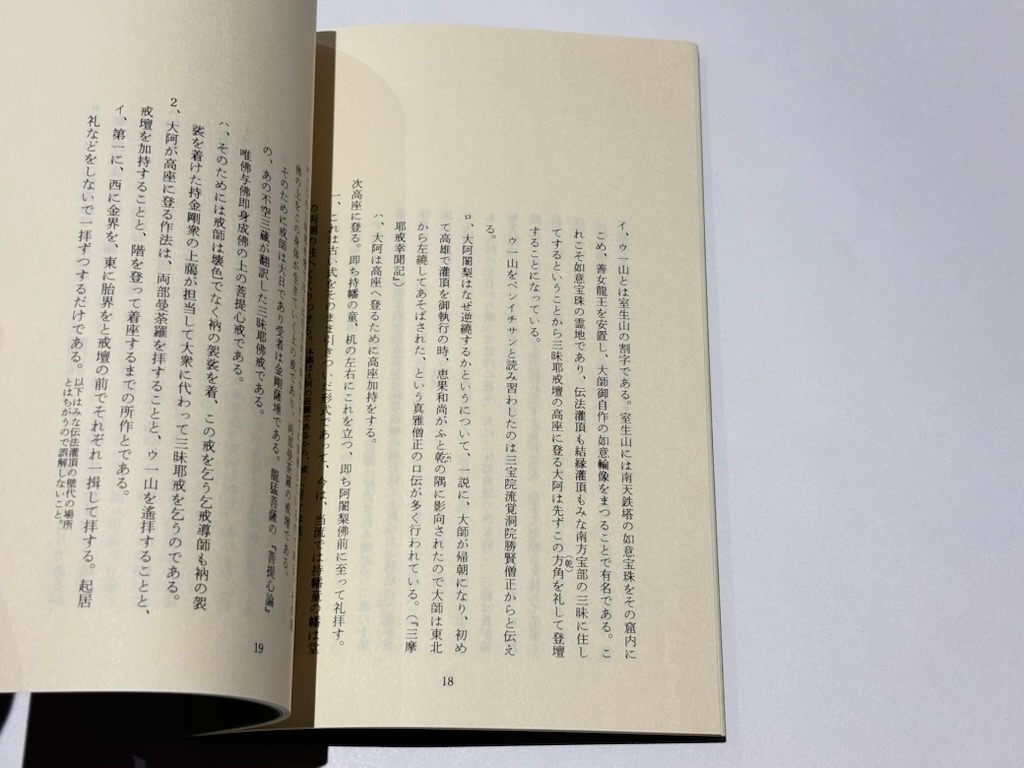 イ、ウ一山とは室生山の割字である。室生山には南天鉄塔の如意宝珠をその窟内に
こめ、善女龍王を安置し、大師御自作の如意輪像をまつることで有名である。こ
れこそ如意宝珠の霊地であり、伝法灌頂も結縁灌頂もみな南方宝部の三昧に住し
てするということから三昧耶戒壇の高座に登る大阿は先ずこの方角を礼して登壇
(乾)
することになっている。
ウ一山をベンイチサンと読み習わしたのは三宝院流覚洞院勝賢僧正からと伝え
る。
ロ、大阿闍梨はなぜ逆繞するかというについて、一説に、大師が帰朝になり、初め
て高雄で灌頂を御執行の時、恵果和尚がふと乾の隅に影向されたので大師は東北
から左繞してあそばされた、という真雅僧正の口伝が多く行われている。(『三摩
耶戒幸聞記』)
ハ、大阿は高座へ登るために高座加持をする。
次高座に登る。即ち持幡の童、机の左右にこれを立つ、即ち阿闍梨佛前に至って礼拝す。
一、これは古い式をそのまま引きついだ形式であって、今は、当流では持幡童の幡は堂
18
そのために戒師は大日であり受者は金剛薩埵である。龍猛菩薩の『菩提心論』
の、あの不空三蔵が翻訳した三昧耶佛戒である。
唯佛与佛即身成佛の上の菩提心戒である。
ハ、そのためには戒師は壊色でなく衲の袈裟を着、この戒を乞う乞戒導師も衲の袈
裟を着けた持金剛衆の上﨟が担当して大衆に代わって三昧耶戒を乞うのである。
2、大阿が高座に登る作法は、両部曼荼羅を拝することと、ウ一山を遙拝することと、
戒壇を加持することと、階を登って着座するまでの所作とである。
イ、第一に、西に金界を、東に胎界をと戒壇の前でそれぞれ一揖して拝する。起居
礼などをしないで一拝ずつするだけである。
以下はみな伝法灌頂の壁代の場所
とはちがうので誤解しないこと。
19